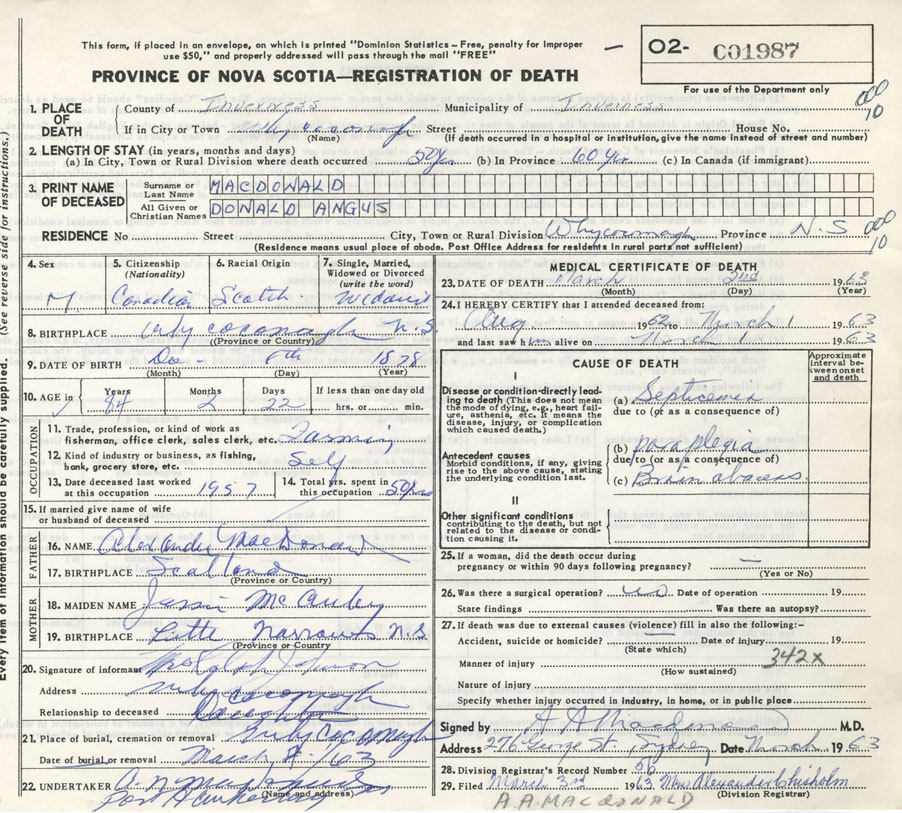 This form, if placed in an envelope, on which is printed "Dominion Statistics—Free, penalty for improper
use $50," and properly addressed will pass through the mail "FREE"
PROVINCE OF NOVA SCOTIA—REGISTRATION OF DEATH
O2- C01987
For use of the Department only
1. PLACE OF DEATH
County of Inverness Municipality of Inverness
000
10
If in City or Town Street House No.
(Name) (If death occurred in a hospital or institution, give the name instead of street and number)
2. LENGTH OF STAY (in years, months and days)
(a) In City, Town or Rural Division where death occurred 50 yrs (b) In Province 60 yr. (c) In Canada (if immigrant)
3. PRINT NAME OF DECEASED
Surname or Last Name MACDONALD
All Given or Christian Names DONALD ANGUS
RESIDENCE No Street City, Town or Rural Division Whycocomagh Province N.S
000
10
(Residence means usual place of abode. Post Office Address for residents in rural parts not sufficient)
4. Sex M
5. Citizenship (Nationality) Canadian
6. Racial Origin Scotch
7. Single, Married, Widowed or Divorced (write the word)
8. BIRTHPLACE N.S
(Province or Country)
9. DATE OF BIRTH Dec - 8th 1878
(Month) (Day) (Year)
10. AGE in Years 84 Months 2 Days 22 If less than one day old hrs. or min.
OCCUPATION
11. Trade, profession, or kind of work as fisherman, office clerk, sales clerk, etc. Farming
12. Kind of industry or business, as fishing, bank, grocery store, etc. Self
13. Date deceased last worked at this occupation 1957
14. Total yrs. spent in this occupation 50 yrs
15. If married give name of wife or husband of deceased
FATHER
16. NAME Alexander MacDonald
17. BIRTHPLACE Scotland
(Province or Country)
MOTHER
18. MAIDEN NAME Jessie
19. BIRTHPLACE Little Narrows N.S
(Province or Country)
20. Signature of informant Mrs Ralph Johnson
Address
Relationship to deceased Daughter
21. Place of burial, cremation or removal
Date of burial or removal March /63
22. UNDERTAKER
Port Hawkesbury
(Name and address)
MEDICAL CERTIFICATE OF DEATH
23. DATE OF DEATH March 2nd 1963
(Month) (Day) (Year)
24. I HEREBY CERTIFY that I attended deceased from:
Aug 1962 to March 1 1963
and last saw him alive on March 1 1963
CAUSE OF DEATH
Approximate interval between onset and death
I
Disease or condition directly leading to death (This does not mean the mode of dying, e.g., heart failure, asthenia, etc. It means the disease, injury, or complication which caused death.)
(a) Septicemia
due to (or as a consequence of)
Antecedent causes
Morbid conditions, if any, giving rise to the above cause, stating the underlying condition last.
(b) paraplegia
due to (or as a consequence of)
(c) Brain abscess.
II
Other significant conditions
contributing to the death, but not related to the disease or condition causing it.
25. If a woman, did the death occur during
pregnancy or within 90 days following pregnancy? —
(Yes or No)
26. Was there a surgical operation? no Date of operation 19
State findings Was there an autopsy?
27. If death was due to external causes (violence) fill in also the following:-
Accident, suicide or homicide? — Date of injury 19
(State which)
342X
Manner of injury
(How sustained)
Nature of injury
Specify whether injury occurred in Industry, in home, or in public place
Signed by A A Macdonald M.D.
Address 276 George St., Sydney Date March 1963
28. Division Registrar's Record Number
29. Filed March 3rd 1963 Mrs. Alexander Chisholm
(Division Registrar)
A.A. MACDONALD
(See reverse side for instructions.)
Every item of information should be carefully supplied.